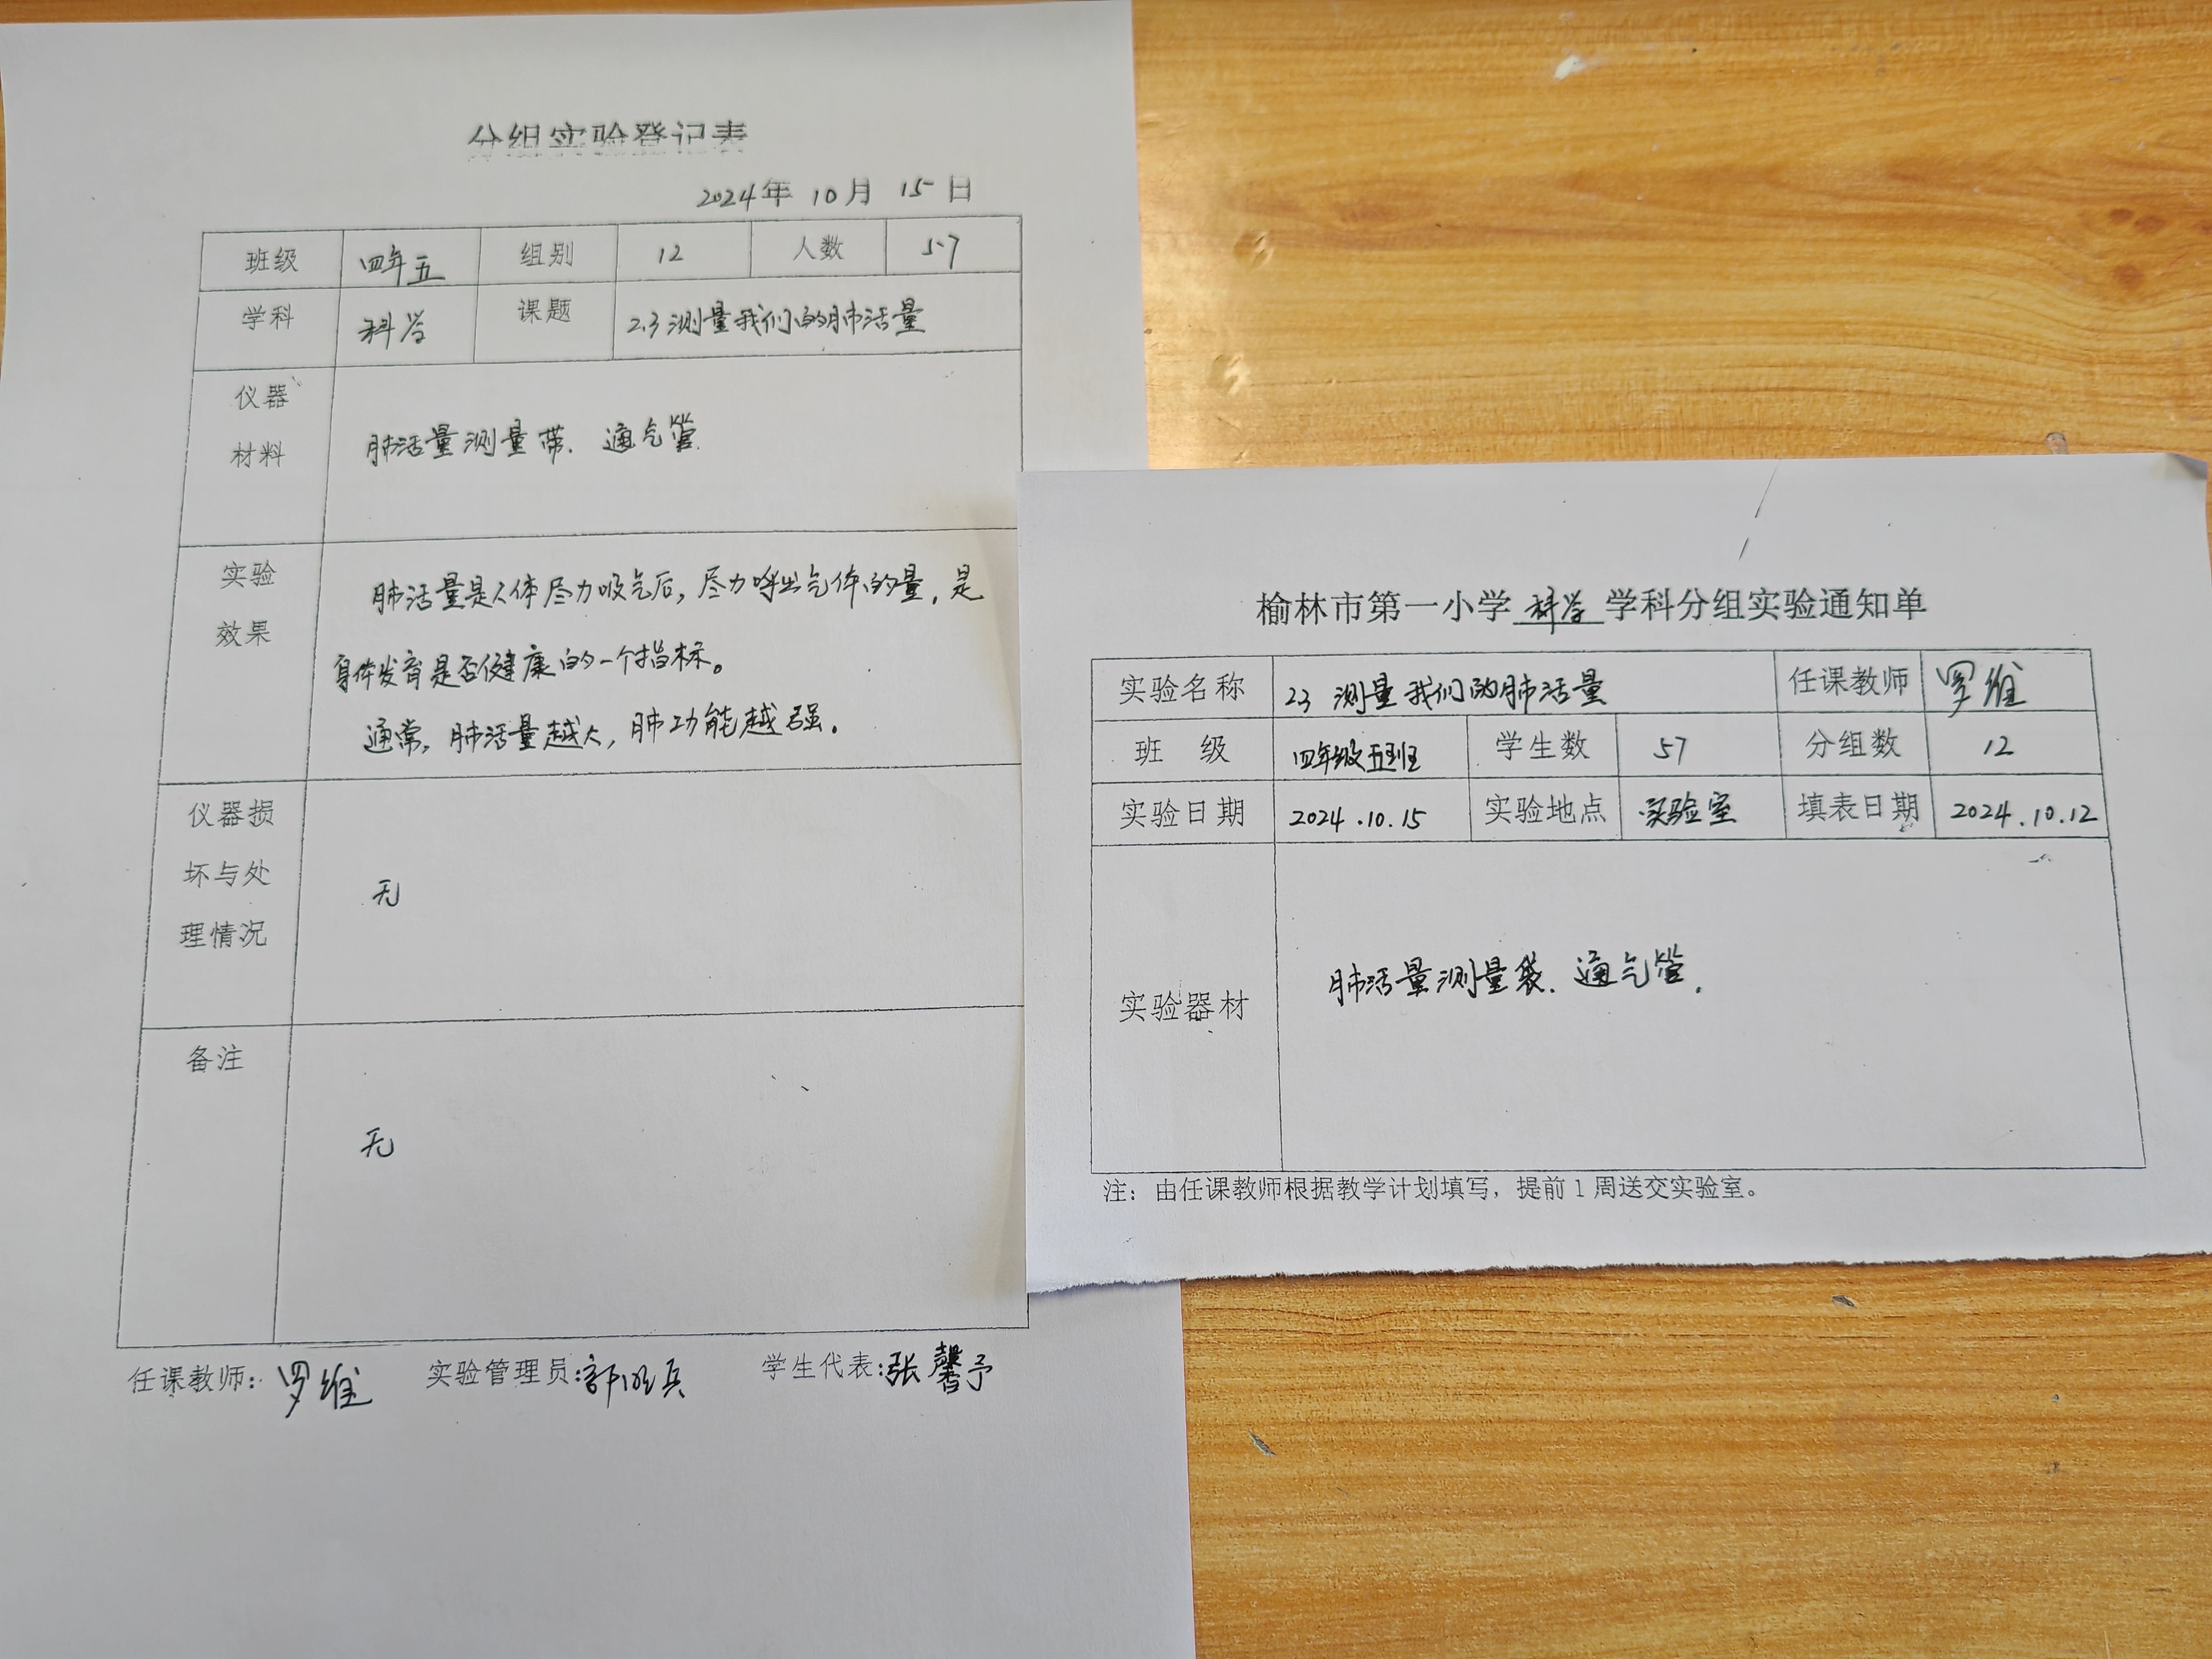 分组实验登记表
2024年 10月 15日
班级 四年五 组别 12 人数 57
学科 科学 课题 2.3 测量我们的肺活量
仪器
材料
肺活量测量带、通气管.
实验
效果
肺活量是人体尽力吸气后,尽力呼出气体的量,是
身体发育是否健康的一个指标。
通常,肺活量越大,肺功能越强。
仪器损
坏与处
理情况
无
备注
无
任课教师: 罗维 实验管理员: 学生代表:张馨予
榆林市第一小学 科学 学科分组实验通知单
实验名称 2.3 测量我们的肺活量 任课教师 罗维
班 级 四年级五班 学生数 57 分组数 12
实验日期 2024.10.15 实验地点 实验室 填表日期 2024.10.12
实验器材 肺活量测量袋、通气管.
注: 由任课教师根据教学计划填写, 提前 1 周送交实验室。